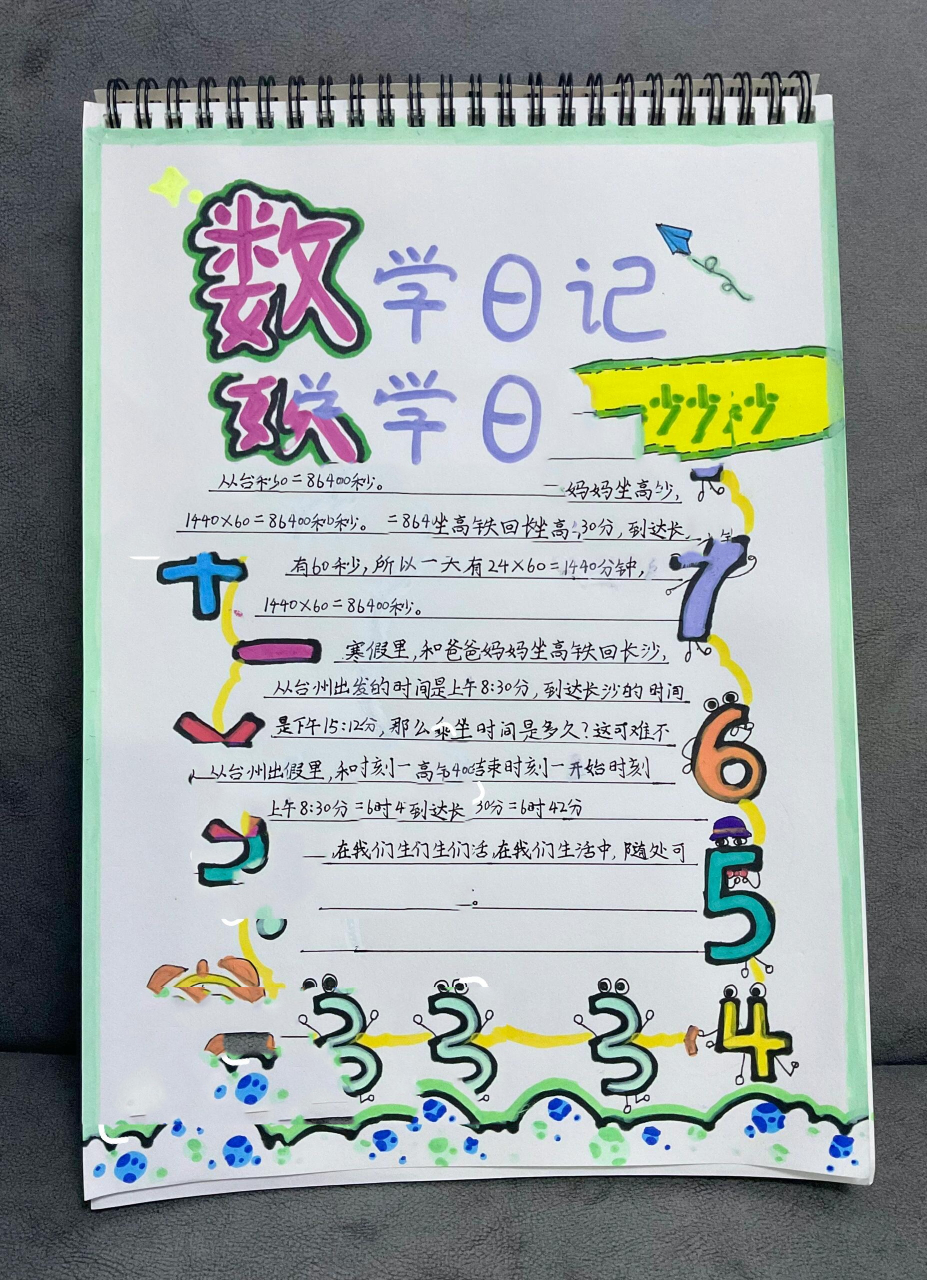 数学日记
学日
少少少
从台秒=86400秒。
妈妈坐高
1440×60=86400秒。=864坐高铁回长坐高30分,到达长
有60秒,所以一天有24×60=1440分钟,
7
十
1440×60=86400秒。
一
寒假里,和爸爸妈妈坐高铁回长沙,
从台州出发的时间是上午8:30分,到达长沙的时间
是下午15:12分,那么乘坐时间是多久?这可难不
6
从台州出假里,和时刻一高结束时刻一开始时刻
上午8:30分=6时4到达长 30分=6时42分
在我们生们生们活,在我们生活中,随处可
5
。
3 3 3 4